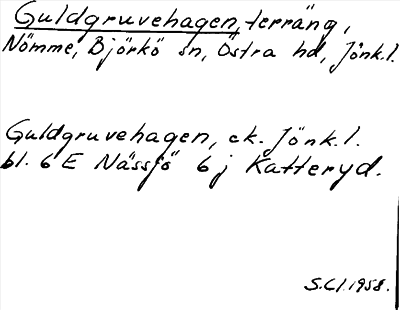 Guldgruvehagen, terräng,
Nömme, Björkö sn, Östra hd, Jönk.l.
Guldgruvehagen, ek. Jönk.l.
bl. 6 E Nässjö 6 j Katteryd.
S.Cl.1958.